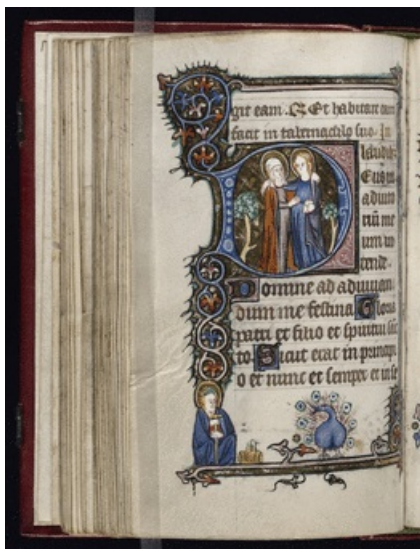 git eam. Et habitare eam
facit in tabernaculo suo. In
laudib;
Deus in
adiuto
riũ me
um in
tende.
Domine ad adiuuan
dum me festina Gloria
patri et filio et spiritui sãc
to Sicut erat in principi
o et nunc et semper et in se